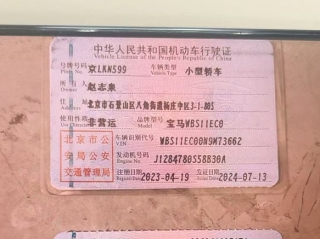 中华人民共和国机动车行驶证
Vehicle License of the People's Republic of China
号牌号码 京LKN599 车辆类型 小型轿车
Plate No. Vehicle Type
所有人 赵志泉
Owner
住址 北京市石景山区八角街道杨庄中区3-1-805
Address
使用性质 非营运 品牌型号 宝马WBS11EC0
Use Character Model
北京市公安局公安交通管理局
车辆识别代号 WBS11EC00N9M73662
VIN
发动机号码 J1284780558830A
Engine No.
注册日期 2023-04-19 发证日期 2024-07-13
Register Date Issue Date